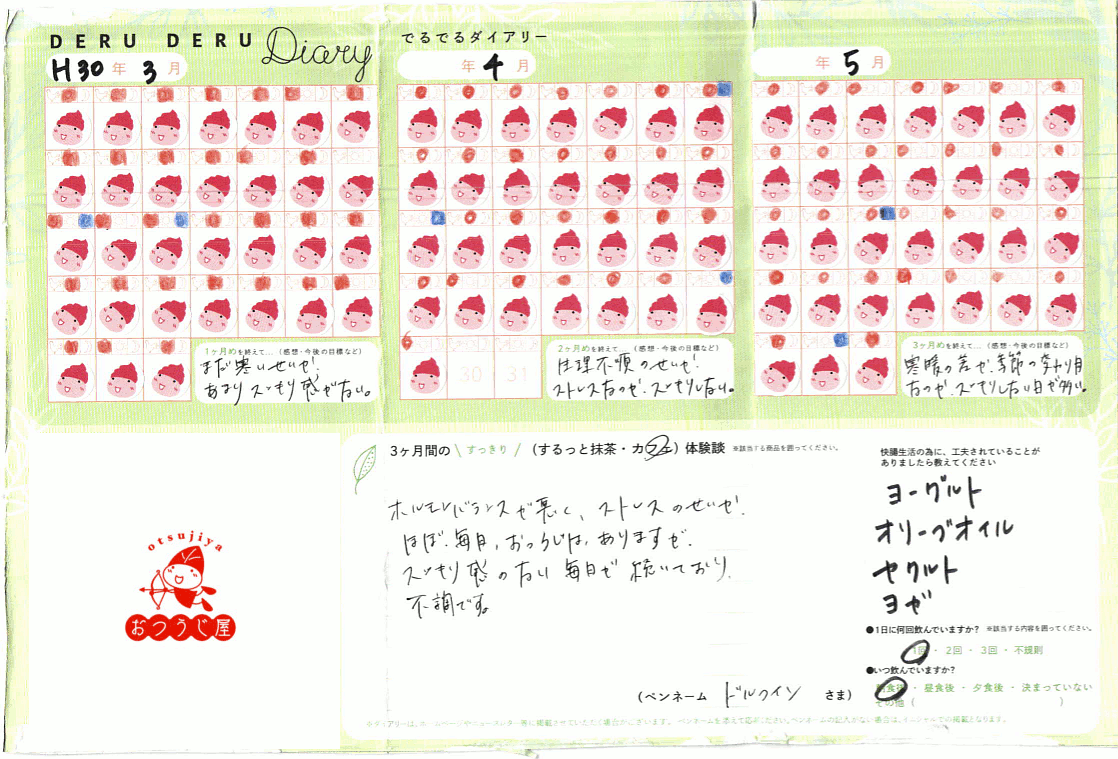 DERU DERU Diary でるでるダイアリー
H30年 3月
年 4月
年 5月
30 31
1ヶ月めを終えて…(感想・今後の目標など)
まだ寒いせいか、
あまりスッキリ感がない。
2ヶ月めを終えて…(感想・今後の目標など)
生理不順のせいか、
ストレスなのか、スッキリしない。
3ヶ月めを終えて…(感想・今後の目標など)
寒暖の差か、季節の変わり目
なのか、スッキリしない日が多い。
3ヶ月間の\すっきり/(するっと抹茶・カフェ)体験談 ※該当する商品を囲ってください。
ホルモンバランスが悪く、ストレスのせいか、
ほぼ、毎日、おつうじは、ありますが、
スッキリ感のない毎日が続いており、
不調です。
(ペンネーム ドルフィン さま)
快腸生活の為に、工夫されていることが
ありましたら教えてください
ヨーグルト
オリーブオイル
ヤクルト
ヨガ
●1日に何回飲んでいますか? ※該当する内容を囲ってください。
1回・2回・3回・不規則
●いつ飲んでいますか?
朝食後・昼食後・夕食後・決まっていない
その他( )
otsujiya
おつうじ屋